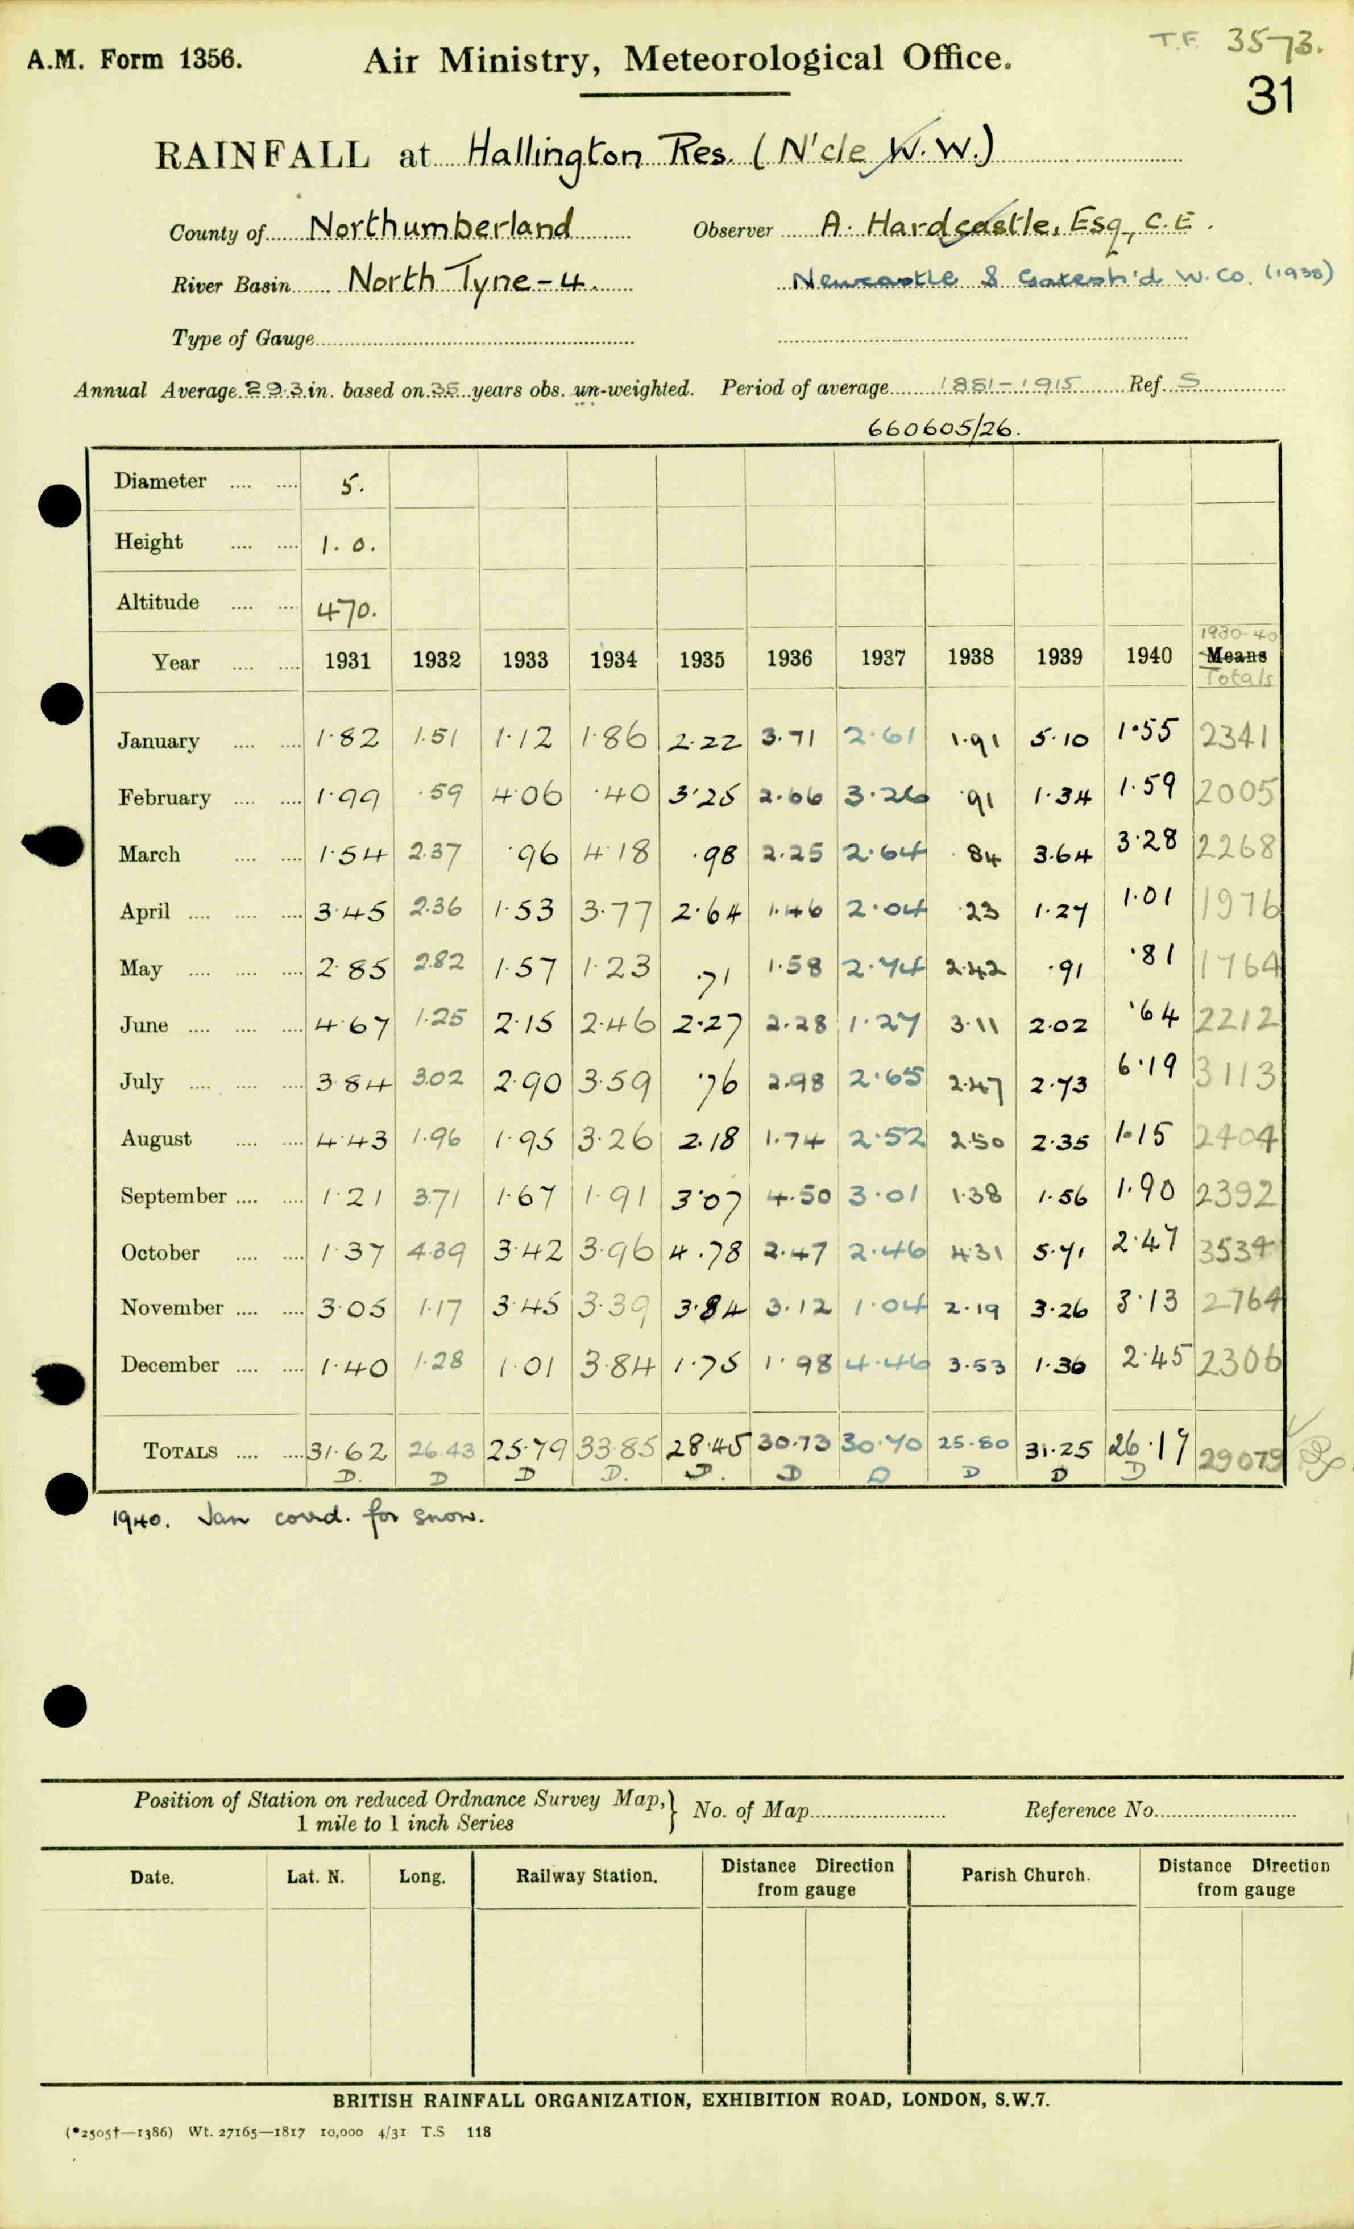 T.F. 3573.
A.M. Form 1356. Air Ministry, Meteorological Office.
31
RAINFALL at Hallington Res. (N'cle W.W.)
County of Northumberland Observer A. Hardcastle, Esq., C.E.
River Basin North Tyne-4. Newcastle & Gatesh'd W. Co. (1938)
Type of Gauge
Annual Average 29.3 in. based on 35 years obs. un-weighted. Period of average 1881-1915 Ref. S
660605/26.
Diameter .... .... 5.
Height .... .... 1.0.
Altitude .... .... 470.
1930-40
Year .... .... 1931 1932 1933 1934 1935 1936 1937 1938 1939 1940 Means
Totals
January .... .... 1.82 1.51 1.12 1.86 2.22 3.71 2.61 1.91 5.10 1.55 2341
February .... .... 1.99 .59 4.06 .40 3.25 2.66 3.26 .91 1.34 1.59 2005
March .... .... 1.54 2.37 .96 4.18 .98 2.25 2.64 .84 3.64 3.28 2268
April .... .... .... 3.45 2.36 1.53 3.77 2.64 1.46 2.04 .23 1.27 1.01 1976
May .... .... .... 2.85 2.82 1.57 1.23 .71 1.58 2.74 2.42 .91 .81 1764
June .... .... .... 4.67 1.25 2.15 2.46 2.27 2.28 1.27 3.11 2.02 .64 2212
July .... .... .... 3.84 3.02 2.90 3.59 .76 2.98 2.65 2.47 2.73 6.19 3113
August .... .... 4.43 1.96 1.95 3.26 2.18 1.74 2.52 2.50 2.35 1.15 2404
September .... .... 1.21 3.71 1.67 1.91 3.07 4.50 3.01 1.38 1.56 1.90 2392
October .... .... 1.37 4.39 3.42 3.96 4.78 2.47 2.46 4.31 5.71 2.47 3534
November .... .... 3.05 1.17 3.45 3.39 3.84 3.12 1.04 2.19 3.26 3.13 2764
December .... .... 1.40 1.28 1.01 3.84 1.75 1.98 4.46 3.53 1.36 2.45 2306
TOTALS .... .... 31.62 26.43 25.79 33.85 28.45 30.73 30.70 25.80 31.25 26.17 29079
D. D D D. D. D D D D D
1940. Jan corrd. for snow.
Position of Station on reduced Ordnance Survey Map, } No. of Map Reference No.
1 mile to 1 inch Series
Date. Lat. N. Long. Railway Station. Distance Direction Parish Church. Distance Direction
from gauge from gauge
BRITISH RAINFALL ORGANIZATION, EXHIBITION ROAD, LONDON, S.W.7.
(*2505†—1386) Wt. 27165—1817 10,000 4/31 T.S 118